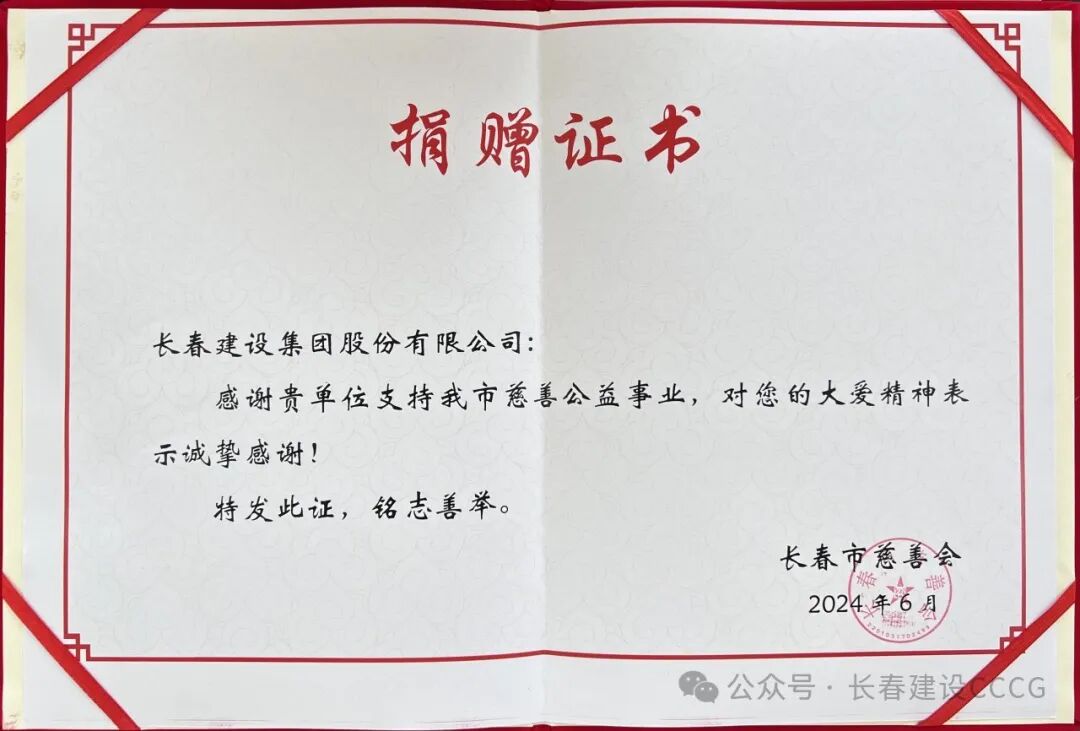 捐赠证书
长春建设集团股份有限公司:
感谢贵单位支持我市慈善公益事业，对您的大爱精神表
示诚挚感谢!
特发此证，铭志善举。
长春市慈善会
2024年6月
公众号·长春建设CCCG